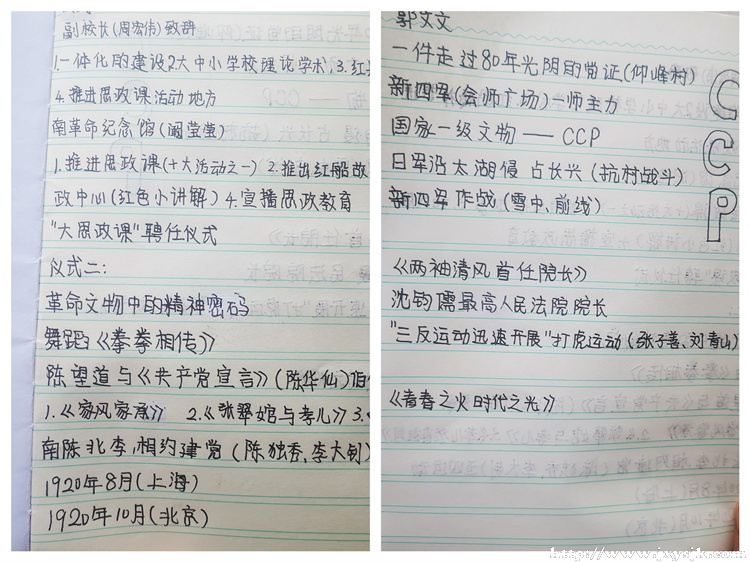 副校长(周宏伟)致辞
1.一体化的建设2大中小学校理论学术,3.红
4.推进思政课活动地方
南革命纪念馆(阚莹莹)
1.推进思政课(十大活动之一) 2.推出红船故
政中心(红色小讲解) 4.宣播思政教育
"大思政课"聘任仪式
仪式二:
革命文物中的精神密码
舞蹈《拳拳相传》
陈望道与《共产党宣言》(陈华仙)
1.《家风家承》 2.《张翠婠与孝儿》3.
南陈北李,相约建党(陈独秀,李大钊)
1920年8月(上海)
1920年10月(北京)
郭文文
一件走过80年光阴的见证(仰峰村)
新四军(会师广场)一师主力
国家一级文物——CCP
日军沿太湖侵占长兴(抗村战斗)
新四军作战(雪中、前线)
CCP
《两袖清风首任院长》
沈钧儒最高人民法院院长
"三反运动迅速开展"打虎运动(张子善、刘青山)
《青春之火时代之光》
http://www.jxysjk.com